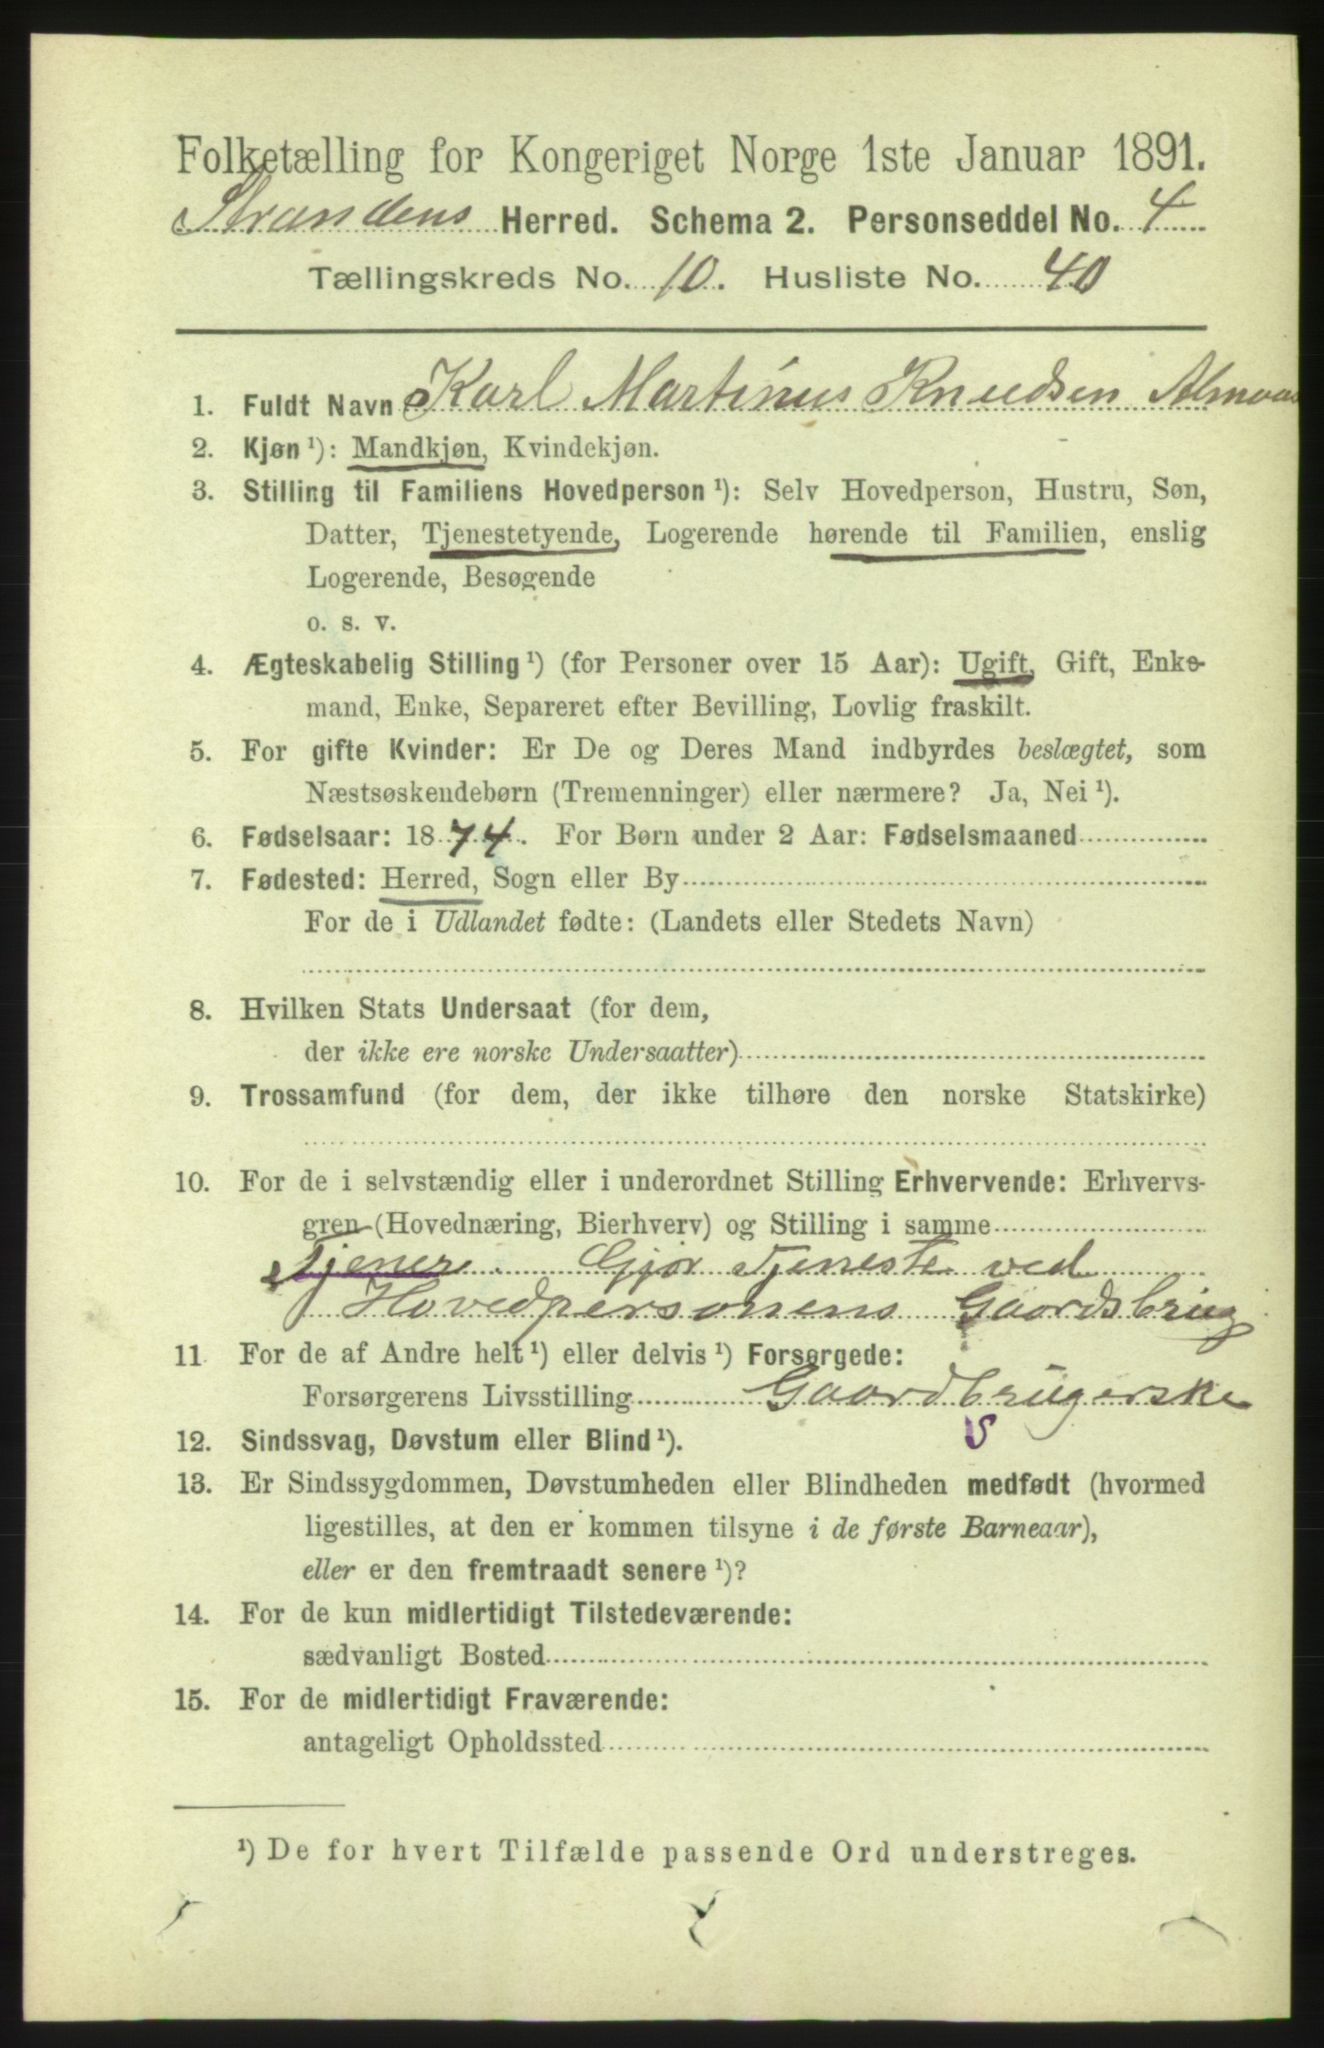 Folketælling for Kongeriget Norge 1ste Januar 1891.
Strandens Herred. Schema 2. Personseddel No. 4
Tællingskreds No. 10. Husliste No. 40
1. Fuldt Navn Karl Martinus Knudsen Almaas
2. Kjøn ¹): Mandkjøn, Kvindekjøn.
3. Stilling til Familiens Hovedperson ¹): Selv Hovedperson, Hustru, Søn,
Datter, Tjenestetyende, Logerende hørende til Familien, enslig
Logerende, Besøgende
o. s. v.
4. Ægteskabelig Stilling ¹) (for Personer over 15 Aar): Ugift, Gift, Enke-
mand, Enke, Separeret efter Bevilling, Lovlig fraskilt.
5. For gifte Kvinder: Er De og Deres Mand indbyrdes beslægtet, som
Næstsøskendebørn (Tremenninger) eller nærmere? Ja, Nei ¹).
6. Fødselsaar: 1874. For Børn under 2 Aar: Fødselsmaaned
7. Fødested: Herred, Sogn eller By
For de i Udlandet fødte: (Landets eller Stedets Navn)
8. Hvilken Stats Undersaat (for dem,
der ikke ere norske Undersaatter)
9. Trossamfund (for dem, der ikke tilhøre den norske Statskirke)
10. For de i selvstændig eller i underordnet Stilling Erhvervende: Erhvervs-
gren (Hovednæring, Bierhverv) og Stilling i samme
Tjener. Gjør Tjeneste ved
Hovedpersonens Gaardsbrug
11 For de af Andre helt ¹) eller delvis ¹) Forsørgede:
Forsørgerens Livsstilling Gaardbrugerske
12. Sindssvag, Døvstum eller Blind ¹).
13. Er Sindssygdommen, Døvstumheden eller Blindheden medfødt (hvormed
ligestilles, at den er kommen tilsyne i de første Barneaar),
eller er den fremtraadt senere ¹)?
14. For de kun midlertidigt Tilstedeværende:
sædvanligt Bosted
15. For de midlertidigt Fraværende:
antageligt Opholdssted
¹) De for hvert Tilfælde passende Ord understreges.